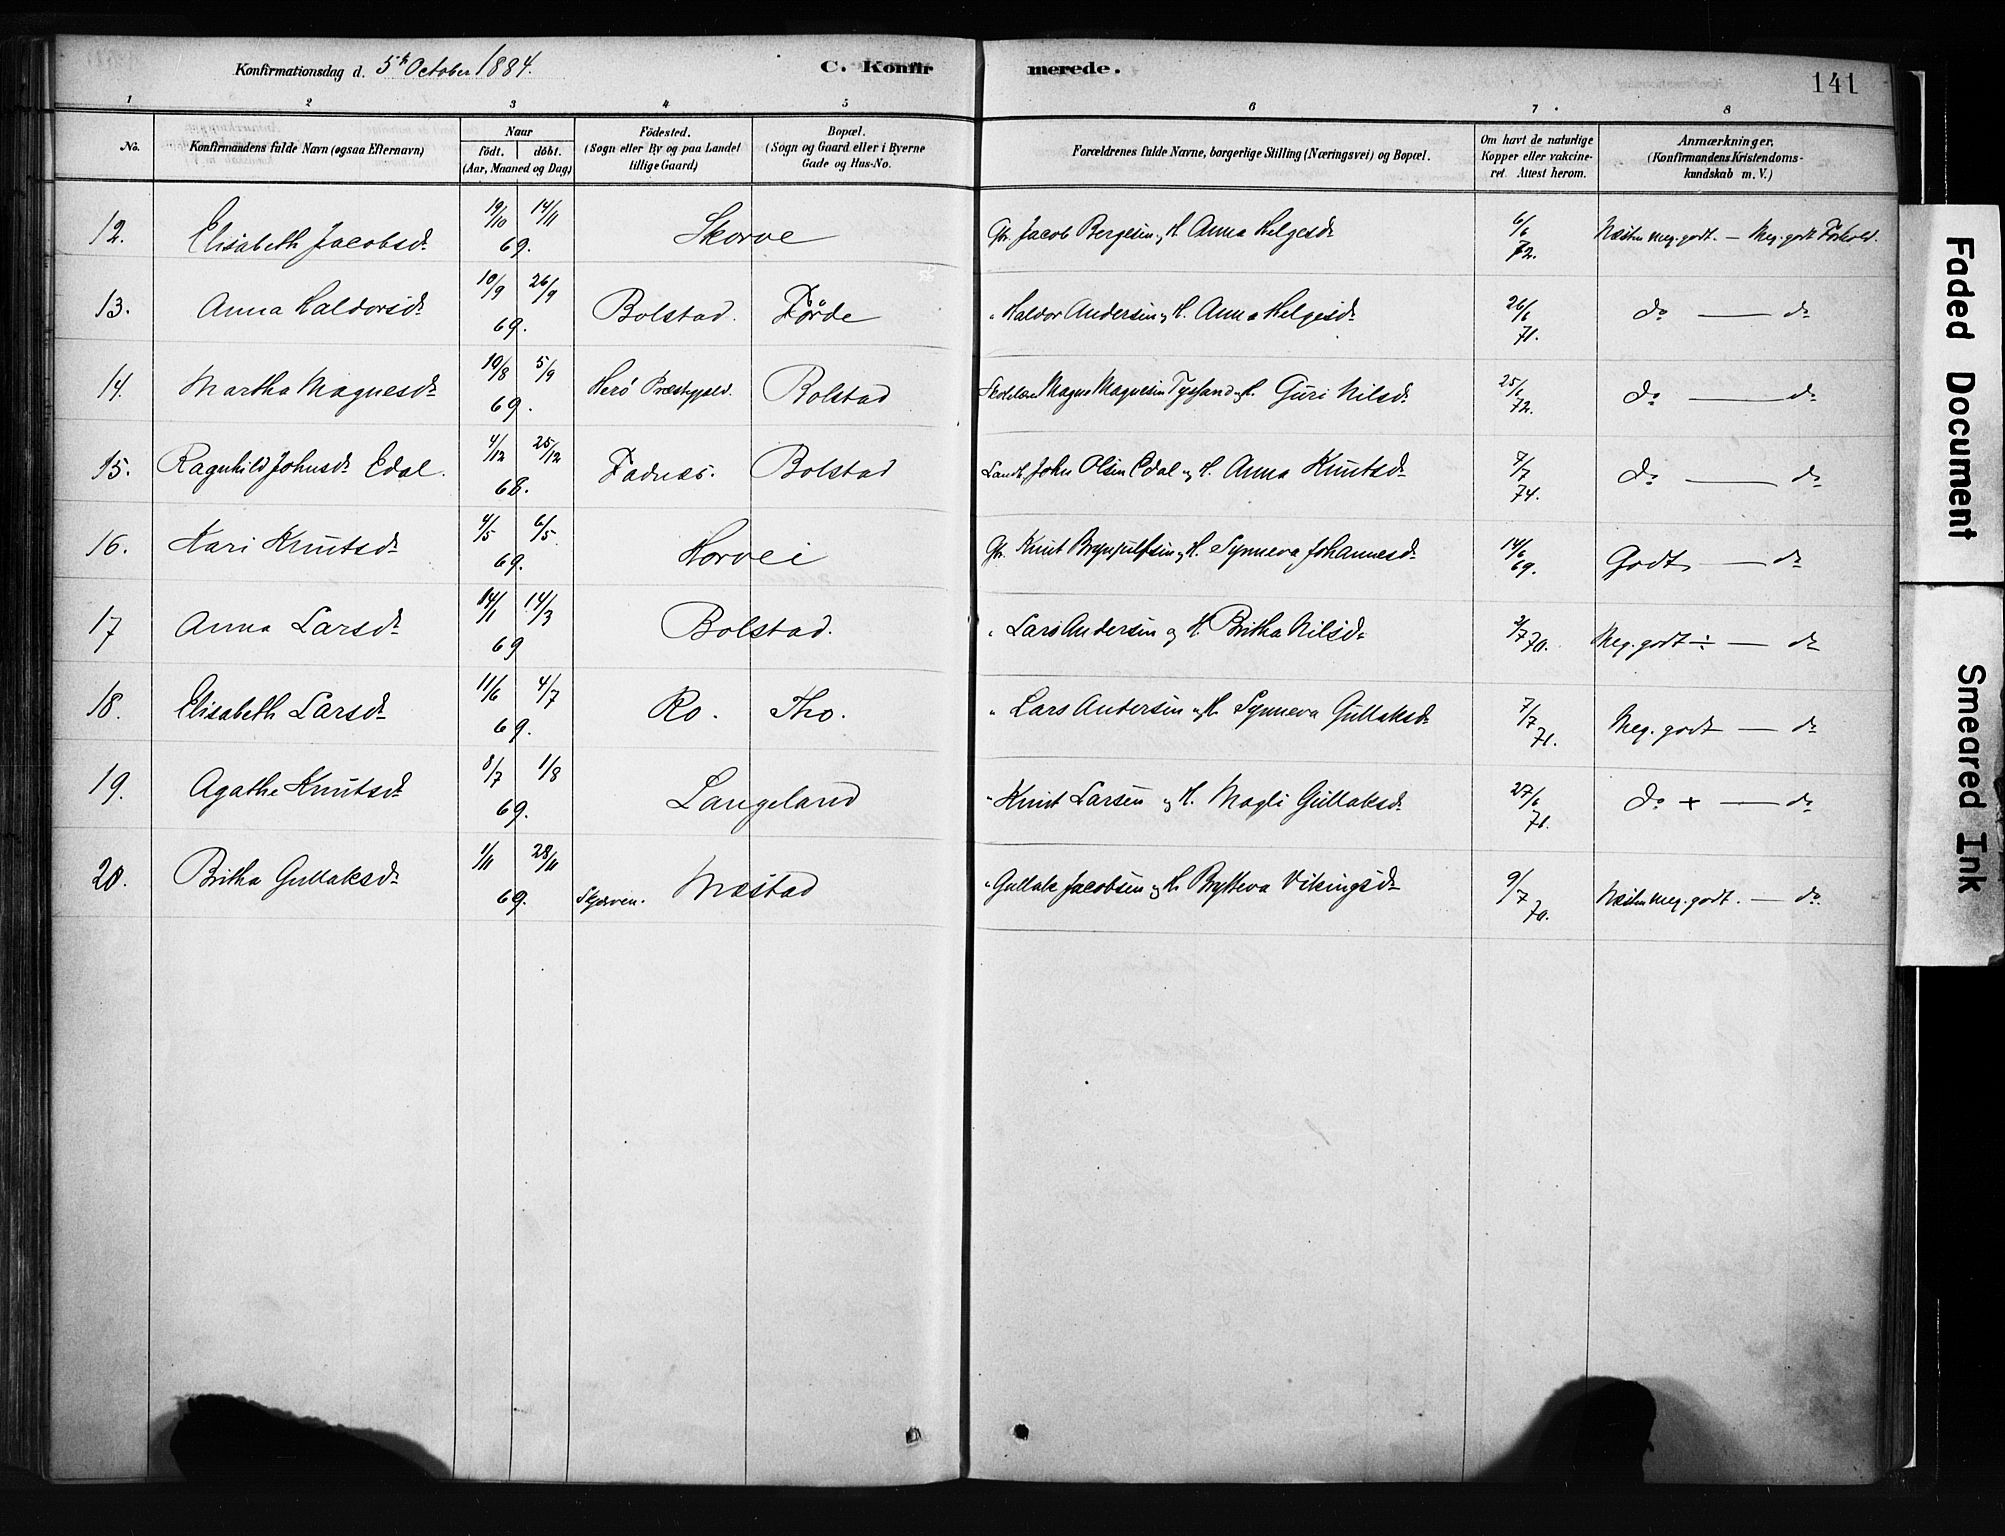 Konfirmationsdag d. 5th October 1884. C. Konfirmerede. 141
1 2 3 4 5 6 7 8
No. Konfirmandens fulde Navn (ogsaa Efternavn) Naar födt. döbt. (Aar, Maaned og Dag) Födested. (Sogn eller By og paa Landet tillige Gaard) Bopæl. (Sogn og Gaard eller i Byerne Gade og Hus-No. Forældrenes fulde Navne, borgerlige Stilling (Næringsvei) og Bopæl. Om havt de naturlige Kopper eller vakcineret. Attest herom. Anmærkninger. (Konfirmandens Kristendomskundskab m. V.)
12. Elisabeth Jacobsdr 19/10 14/11 69. Skorve Gbr. Jacob Bergesen og H. Anna Helgesdr 6/6 72. Næsten meg. godt. — Meg. godt Forhold.
13. Anna Haldorsdr 10/9 26/9 69. Bolstad. Förde " Haldor Andersen og H. Anna Helgesdr 26/6 71. do — do
14. Martha Magnesdr 10/8 5/9 69. Herö Præstegjeld. Bolstad Magne Magnesen Tyssand og H. Guri Nilsdr 25/6 72. do — do
15. Ragnhild Johnsdr Edal. 4/12 25/12 68. Fadnæs. Bolstad Landh. John Olsen Edal og H. Anna Knutsdr 7/7 74. do — do
16. Kari Knutsdr 4/5 6/5 69. Horvei Gbr. Knut Brynjulfsen og H. Synneva Johannesdr 14/6 69. Godt — do
17 Anna Larsdr 14/1 14/3 69 Bolstad. " Lars Andersen og H. Britha Nilsdr 2/7 70. Meg. godt ÷ — do
18. Elisabeth Larsdr 11/6 4/7 69. Ro. Tho. " Lars Andersen og H. Synneva Gullaksdr 7/7 71. Meg. godt — do
19. Agathe Knutsdr 8/7 1/8 69. Langeland " Knut Larsen og H. Magli Gullaksdr 27/6 71. do + — do
20. Britha Gullaksdr 1/11 28/11 69. Skjerven. Mæstad " Gullak Jacobsen og H. Brytteva Vikingsdr 9/7 70. Næsten meg. godt. — do.
Faded Document
Smeared Ink